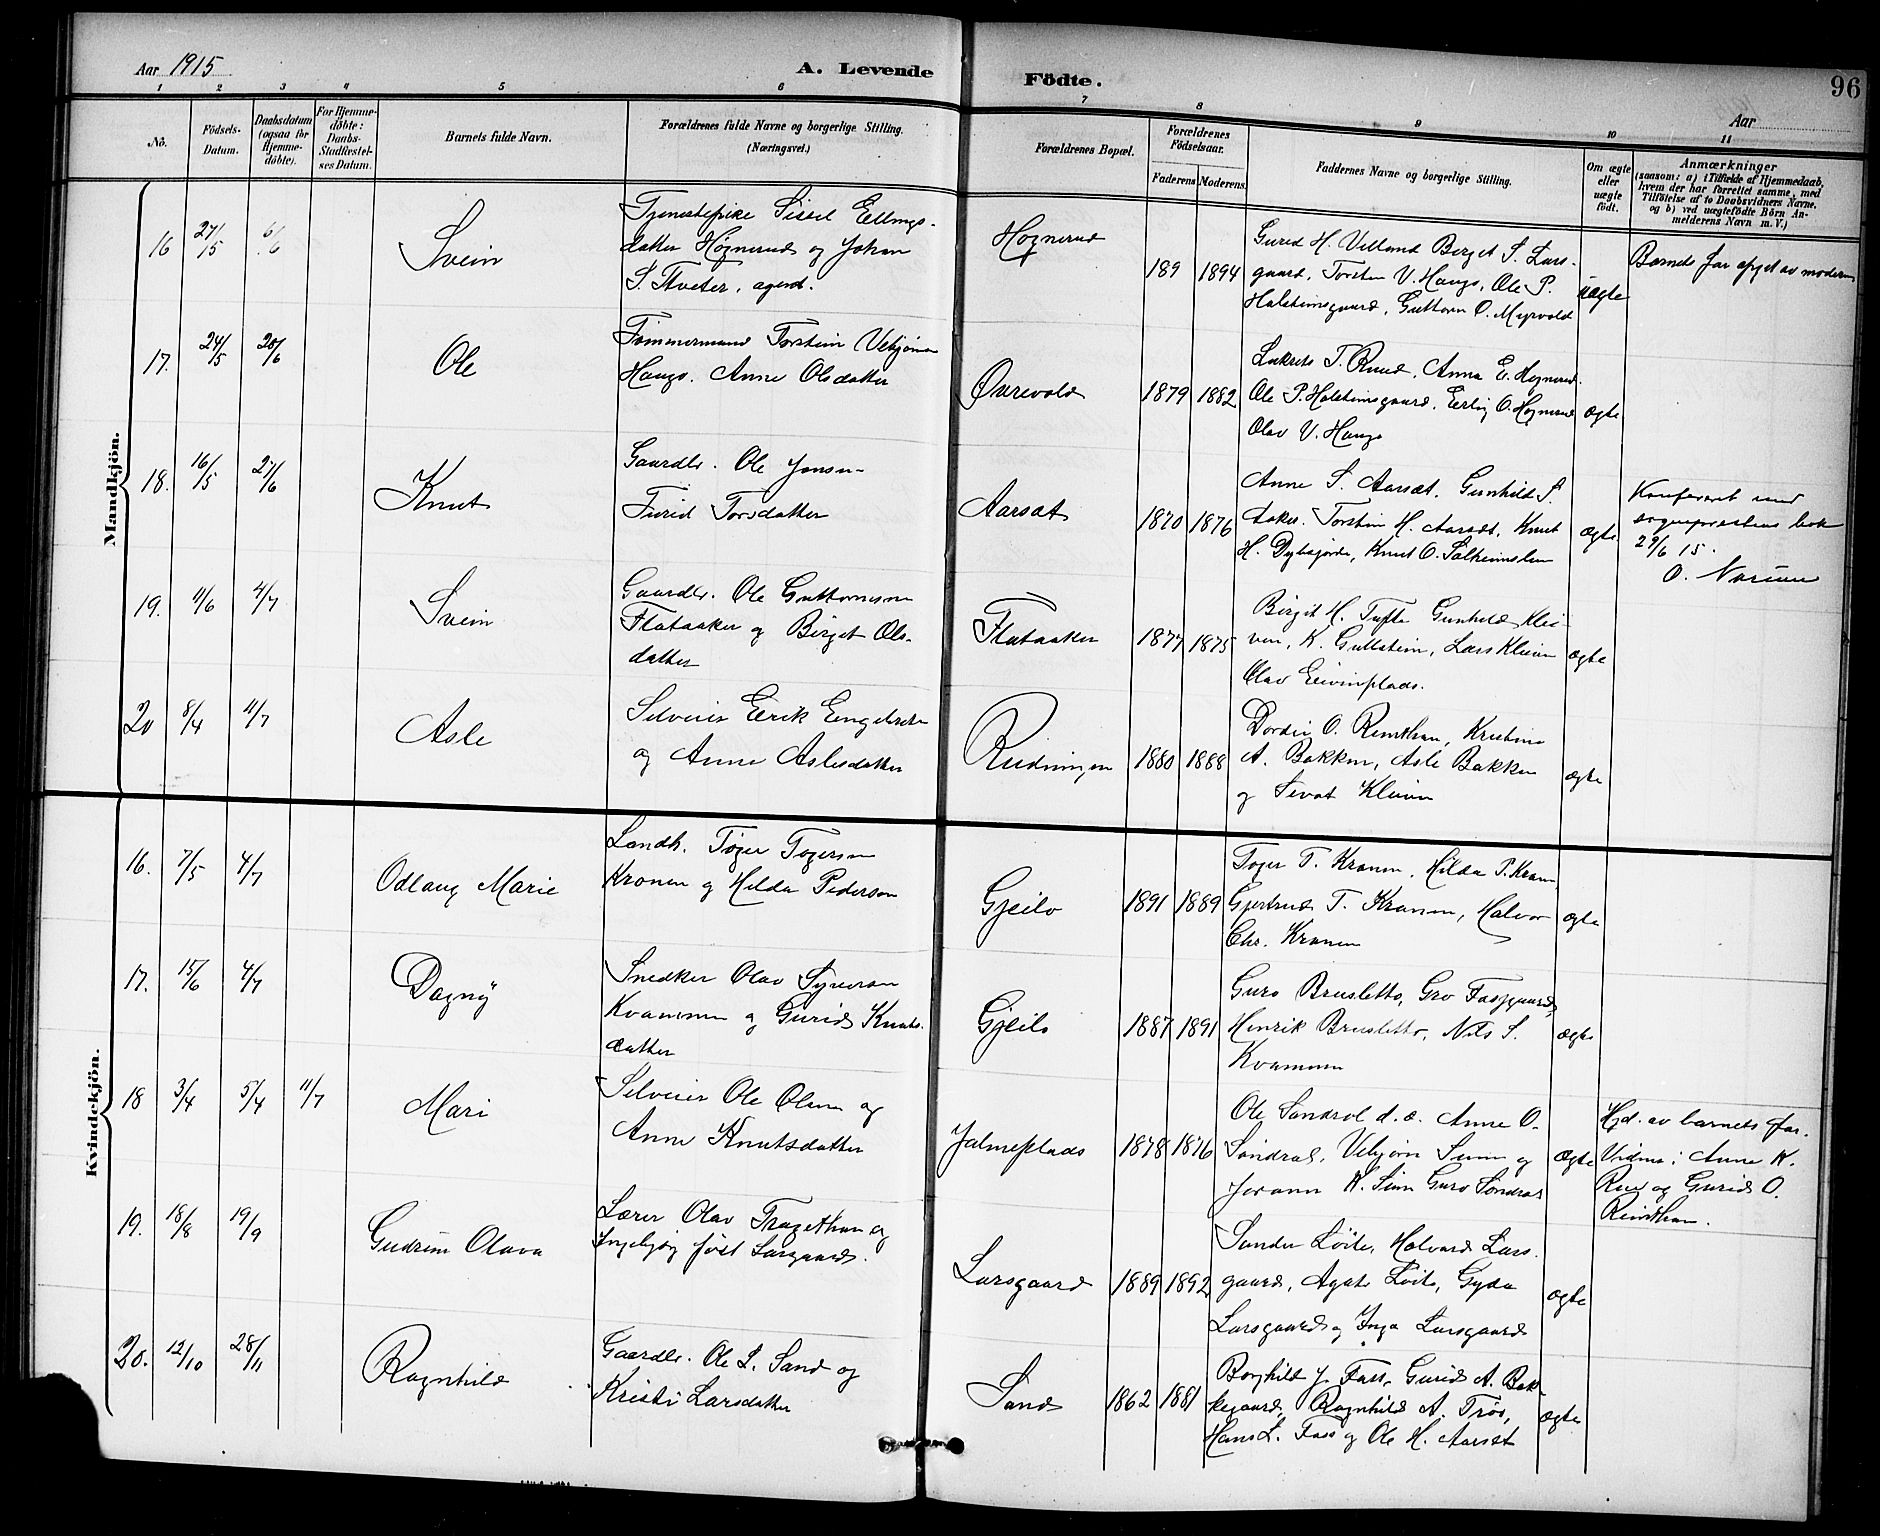 Aar 1915
A. Levende Födte.
96
Aar
1 2 3 4 5 6 7 8 9 10 11
No.
Födsels-Datum.
Daabsdatum (ogsaa for Hjemme-döbte).
For Hjemme-döbte: Daabs-Stadfæstel-ses Datum.
Barnets fulde Navn.
Forældrenes fulde Navne og borgerlige Stilling. (Næringsvei.)
Forældrenes Bopæl.
Forældrenes Födselsaar.
Faderens Moderens.
Faddernes Navne og borgerlige Stilling.
Om ægte eller uægte födt.
Anmærkninger
(saasom: a) i Tilfælde af Hjemmedaab,
hvem der har forrettet samme, med
Tilföielse af to Daabsvidners Navne.
og b) ved uægtefödte Börn An-
melderens Navn m. V.)
Mandkjön.
16 27/5 6/6 Svein
Tjenestepike Sissel Ellings-
datter Høgnerud og Johan
S. Tveter, agent.
Høgnerud 189 1894
Gurid H. Villand Berget S. Lars-
gaard, Torsten V. Haugo, Ole P.
Halsteinsgaard, Guttorm O. Myrvold
uægte
Barnets far opgit av moderen
17. 24/5 20/6 Ole
Tømmermand Torstein Vebjørnsen
Haugo. Anne Olsdatter
Øvrevold 1879 1882
Lukrets T. Ruud, Anna E. Høgnerud.
Ole P. Halsteinsgaard, Erling O. Høgnerud
Olav V. Haugo
ægte
18. 16/5 27/6 Knut
Gaardbr. Ole Jonsen
Turid Torsdatter
Aarset 1870 1876
Anne S. Aarset, Gunhild S.
Aaker. Torstein H. Aarset, Knut
H. Dybsjorde, Knut O. Solheimslien
ægte
Konferert med
sogneprestens bok
29/6 15.
O. Norum
19. 4/6 4/7 Svein
Gaardbr. Ole Guttormsen
Flataaker og Birget Ols-
datter
Flataaker 1877 1875
Birgit H. Tufte Gunhild Klei-
ven, K. Gullstein, Lars Kleiven
Olav Eivindplads.
ægte
20 8/4 11/7 Asle
Selveier Eerik Engebretsen
og Anne Aslesdatter
Rudningen 1880 1888
Dordei O. Reinthon, Kristine
A. Bakken, Asle Bakken
og Sevat Kleiven
ægte
Kvindekjön.
16. 7/5 4/7 Odlaug Marie
Landh. Tøger Tøgersen
Kronen og Hilda Pedersen
Gjeilo 1891 1889
Tøger T. Kronen, Hilda P. Kronen,
Gjertrud T. Kronen, Halvor
Chr. Kronen
ægte
17. 15/6 4/7 Dagny
Snedker Olav Syversen
Kvammen og Gurid Knuts-
datter
Gjeilo 1887 1891
Guro Brusletto, Gro Fossgaard,
Henrik Brusletto, Nils S.
Kvammen
ægte
18 3/4 5/4 11/7 Mari
Selveier Ole Olsen og
Anne Knutsdatter
Jalmeplads 1878 1876
Ole Søndrol d. æ. Anne O.
Søndrol, Vebjørn Sinn og
Jorann K. Sinn Guro Søndrol
Ægte
Hjd. av barnets far.
Vidner: Anne K.
Rue og Gurid O.
Reinthon.
19. 18/8 19/9 Gudrun Olava
Lærer Olav Tragethon og
Ingebjørg født Larsgaard.
Larsgaard 1889 1892
Sander Løite, Halvard Lars-
gaard, Agate Løite, Gyda
Larsgaard og Inga Larsgaard
ægte
20. 12/10 28/11 Ragnhild
Gaardbr. Ole L. Sand og
Kristi Larsdatter
Sand 1862 1881
Borghild J. Foss, Gurid A. Bak-
kegaard, Ragnhild A. Trøo,
Hans L. Foss og Ole H. Aarset
ægte